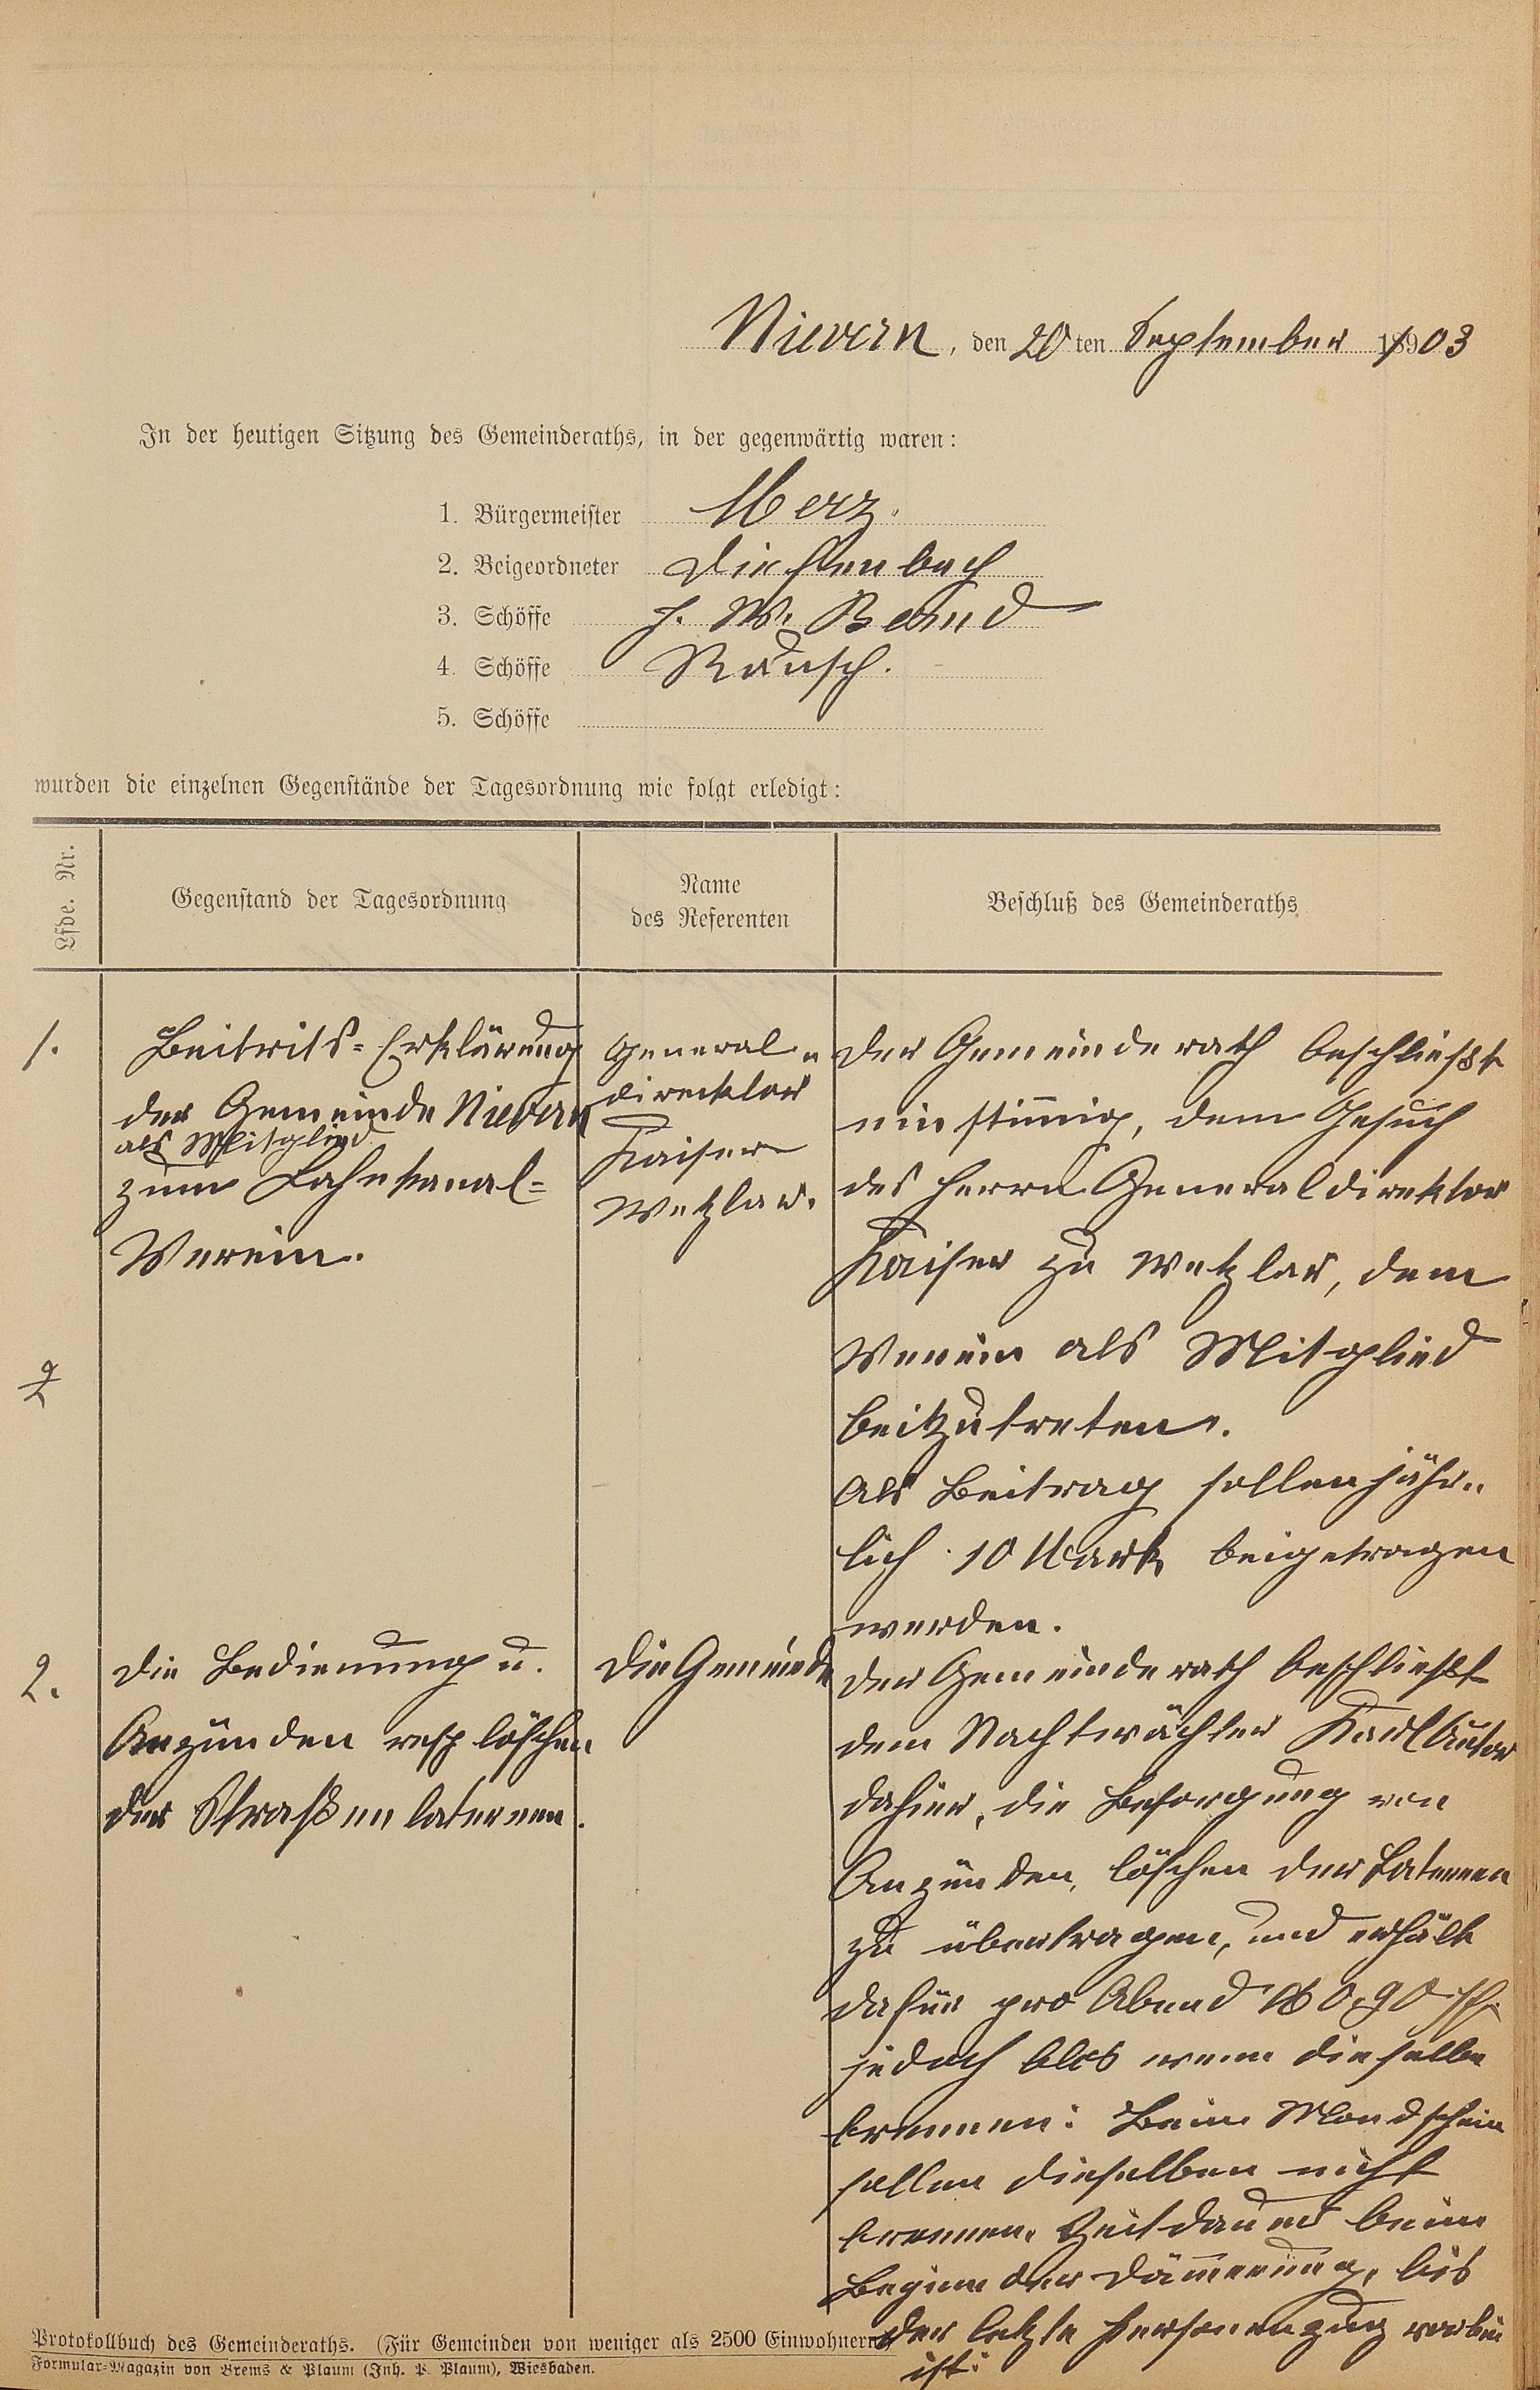 Nievern, den 20 ten September 1903
In der heutigen Sitzung des Gemeinderaths, in der gegenwärtig waren:
1. Bürgermeister Merz.
2. Beigeordneter Diefenbach
3. Schöffe J. W. Bernd
4. Schöffe Rausch.
5. Schöffe
wurden die einzelnen Gegenstände der Tagesordnung wie folgt erledigt:
Lfde. Nr.
Gegenstand der Tagesordnung
Name
des Referenten
Beschluß des Gemeinderaths
1.
Beitrits-Erklärung
der Gemeinde Nievern
als Mitglied
zum Lahnkanal-
Verein.
General-
direcktor
Kaiser
Wetzlar.
Der Gemeinderath beschließt
einstimmig, dem Gesuch
des Herrn Generaldirektor
Kaiser zu Wetzlar, dem
Verein als Mitglied
beizutreten.
Als Beitrag sollen jähr-
lich 10 Mark beigetragen
werden.
2
2.
Die Bedienung u.
Anzünden resp löschen
der Straßenlaternen.
Die Gemeinde
Der Gemeinderath beschließt
dem Nachtwächter Karl
dahier, die Besorgung von
Anzünden, löschen der Laternen
zu übertragen, und erhält
dafür pro Abend M 0,90 Pf.
jedoch blos wenn dieselbe
brennen: Beim Mondschein
sollen dieselben nicht
brennen. Zeitdauer beim
Beginn der Dämmerung, bis
der letzte Personenzug vorbei
ist.
Protokollbuch des Gemeinderaths. (Für Gemeinden von weniger als 2500 Einwohnern.)
Formular-Magazin von Brems & Plaum (Inh. P. Plaum), Wiesbaden.